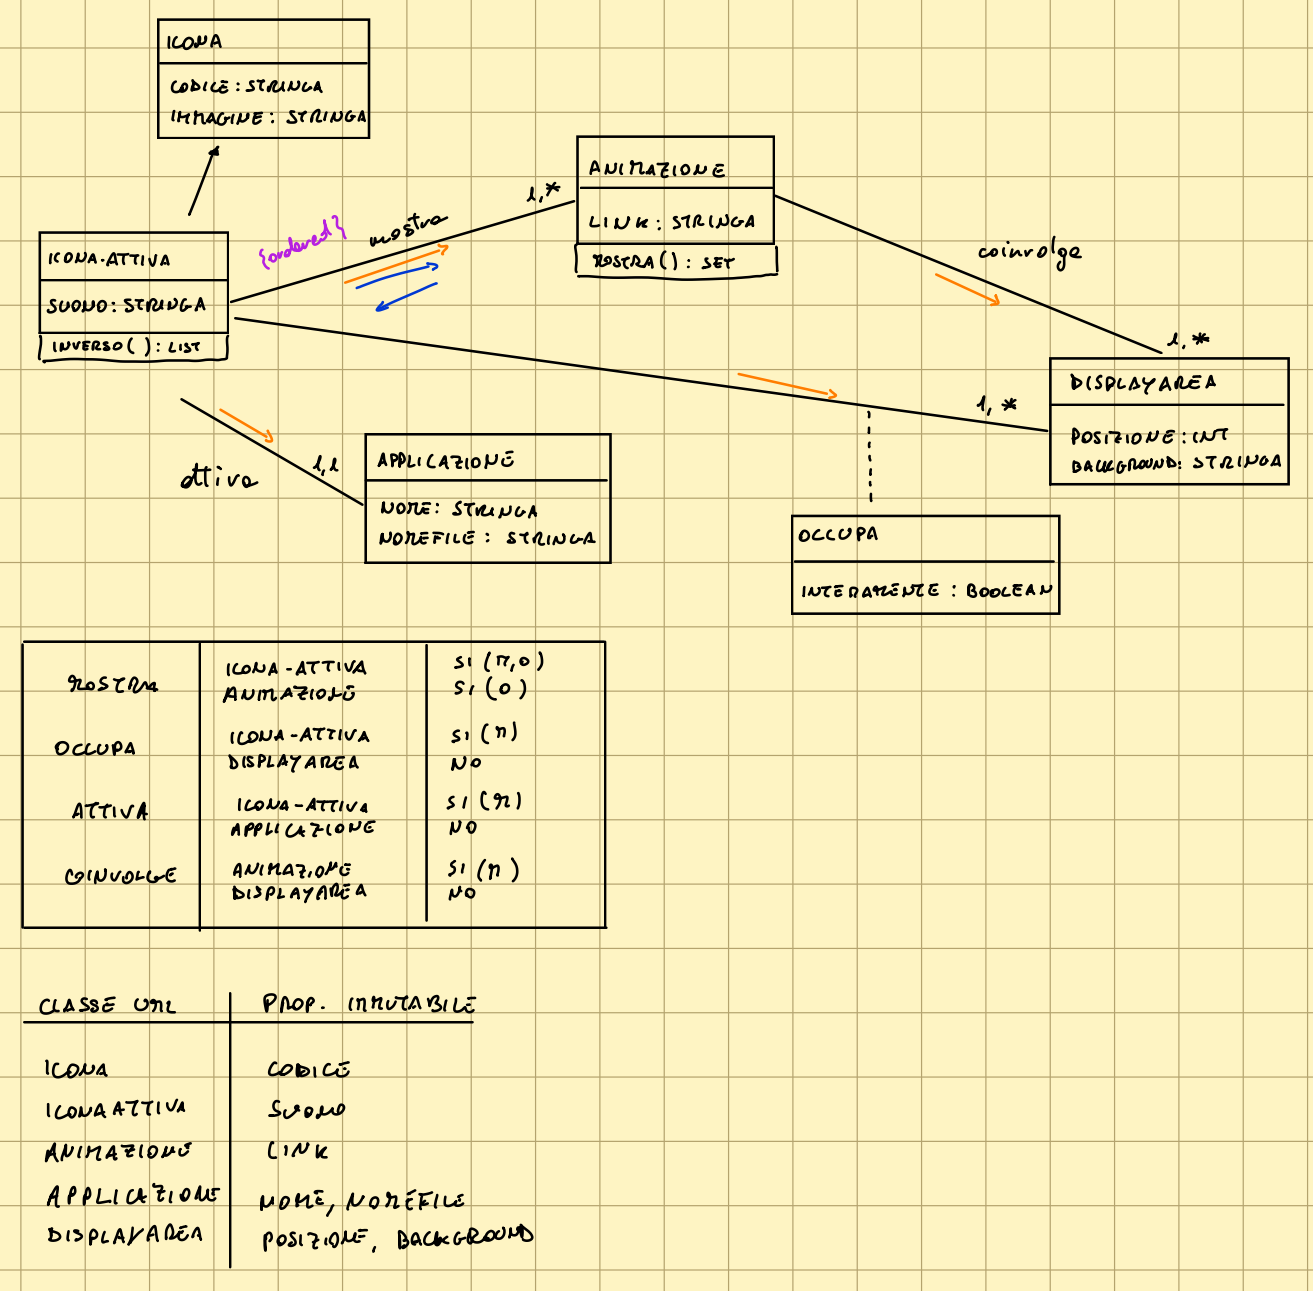 ICONA
CODICE : STRINGA
IMMAGINE : STRINGA
ANIMAZIONE
LINK : STRINGA
MOSTRA() : SET
1,*
mostra
{ordered}
ICONA-ATTIVA
SUONO : STRINGA
INVERSO() : LIST
coinvolge
1,*
DISPLAYAREA
POSIZIONE : INT
BACKGROUND : STRINGA
1,*
attiva
1,1
APPLICAZIONE
NOME : STRINGA
NOMEFILE : STRINGA
OCCUPA
INTERAMENTE : BOOLEAN
MOSTRA
ICONA-ATTIVA
ANIMAZIONE
SI (M,O)
SI (O)
OCCUPA
ICONA-ATTIVA
DISPLAYAREA
SI (M)
NO
ATTIVA
ICONA-ATTIVA
APPLICAZIONE
SI (M)
NO
COINVOLGE
ANIMAZIONE
DISPLAYAREA
SI (M)
NO
CLASSE UML PROP. IMMUTABILE
ICONA CODICE
ICONA ATTIVA SUONO
ANIMAZIONE LINK
APPLICAZIONE NOME, NOMEFILE
DISPLAYAREA POSIZIONE, BACKGROUND